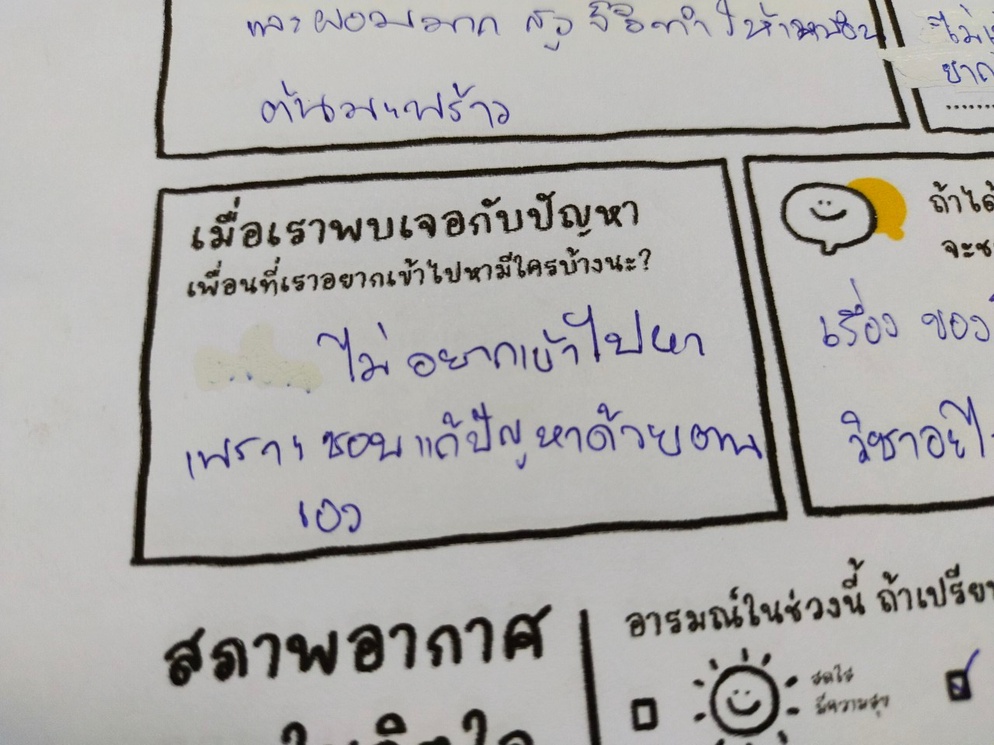 และผอมมาก สูง จึงทำให้เหมือน
ไม่
ต้นมะพร้าว
เมื่อเราพบเจอกับปัญหา
เพื่อนที่เราอยากเข้าไปหามีใครบ้างนะ?
ไม่อยากเข้าไปหา
เพราะชอบแก้ปัญหาด้วยตน
เอง
ถ้าได้
จะช
เรื่อง ของ
วิชาอะไ
สภาพอากาศ
ในจิตใจ
อารมณ์ในช่วงนี้ ถ้าเปรีย
สดใส
มีความสุข